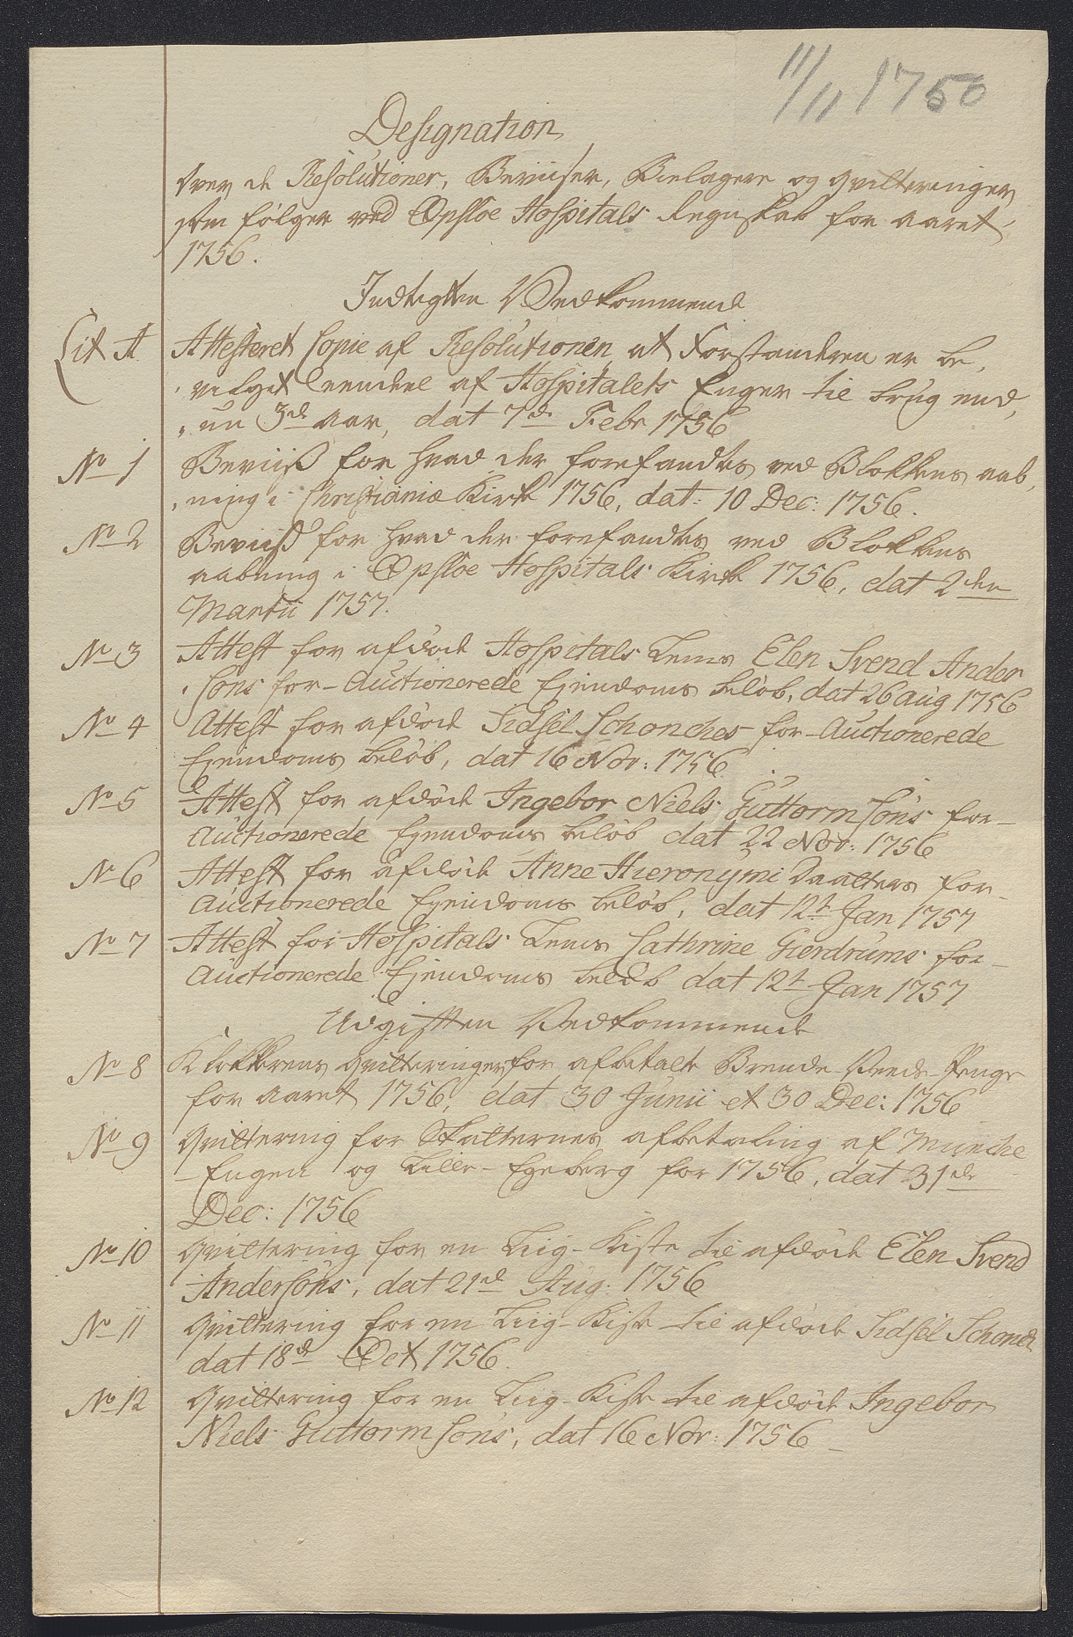 11/11 1756
Designation
Over de Resolutioner, Beviiser, Bielagere og Qvitteringer
som følger ved Opsloe Hospitals Regnskab for aaret
1756.
Indtegten Vedkommende
Lit A. Attesteret Copie af Resolutionen at Forstanderen er be,
vilget eendeel af Hospitalets Enger til brug end,
nu 3de aar, dat 7de Febr 1756
No 1 Beviiß for hvad der forefandtes ved Blokkens aab,
ning i Christiania Kirke 1756, dat: 10 Dec: 1756.
No 2 Beviiß for hvad der forefandtes ved Blokkens
aabning i Opsloe Hospitals Kirke 1756, dat 2den
Martii 1757.
No 3 Attest for afdøde Hospitals Lems Elen Svend Ander
søns for-Auctionerede Ejendoms beløb, dat 26 Aug 1756
No 4 Attest for afdøde Sidsel Schonches for-Auctionerede
Ejendoms beløb, dat 16 Nov: 1756
No 5 Attest for afdøde Ingebor Niels Guttormsøns for-
Auctionerede Ejendoms beløb dat 22 Nov: 1756
No 6 Attest for afdøde Anne Hieronymi Daalters for
Auctionerede Ejendoms beløb, dat 12t Jan 1757
No 7 Attest for Hospitals Lems Cathrine Gierdrums for-
Auctionerede Ejendoms beløb dat 12t Jan 1757
Udgiften Vedkommende
No 8 Klokkerens Qvitteringer for afbetalte Brende Veeds Penge
for aaret 1756, dat 30 Junii et 30 Dec: 1756
No 9 Qvittering for Skatternes afbetaling af Munche
Engen og Lille-Egeberg for 1756, dat 31de
Dec: 1756
No 10 Qvittering for en Liig-Kiste til afdøde Elen Svend
Andersøns, dat 21d Aug: 1756
No 11 Qvittering for en Liig-Kiste til afdøde Sidsel Schonch
dat 18d Oct 1756.
No 12 Qvittering for en Liig-Kiste til afdøde Ingebor
Niels Guttormsøns, dat 16 Nov: 1756